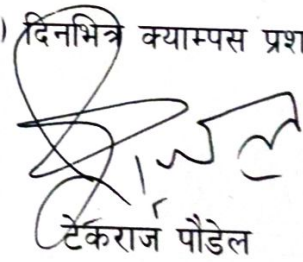 ) दिनभित्रै क्याम्पस प्रश
टेकराज पौडेल